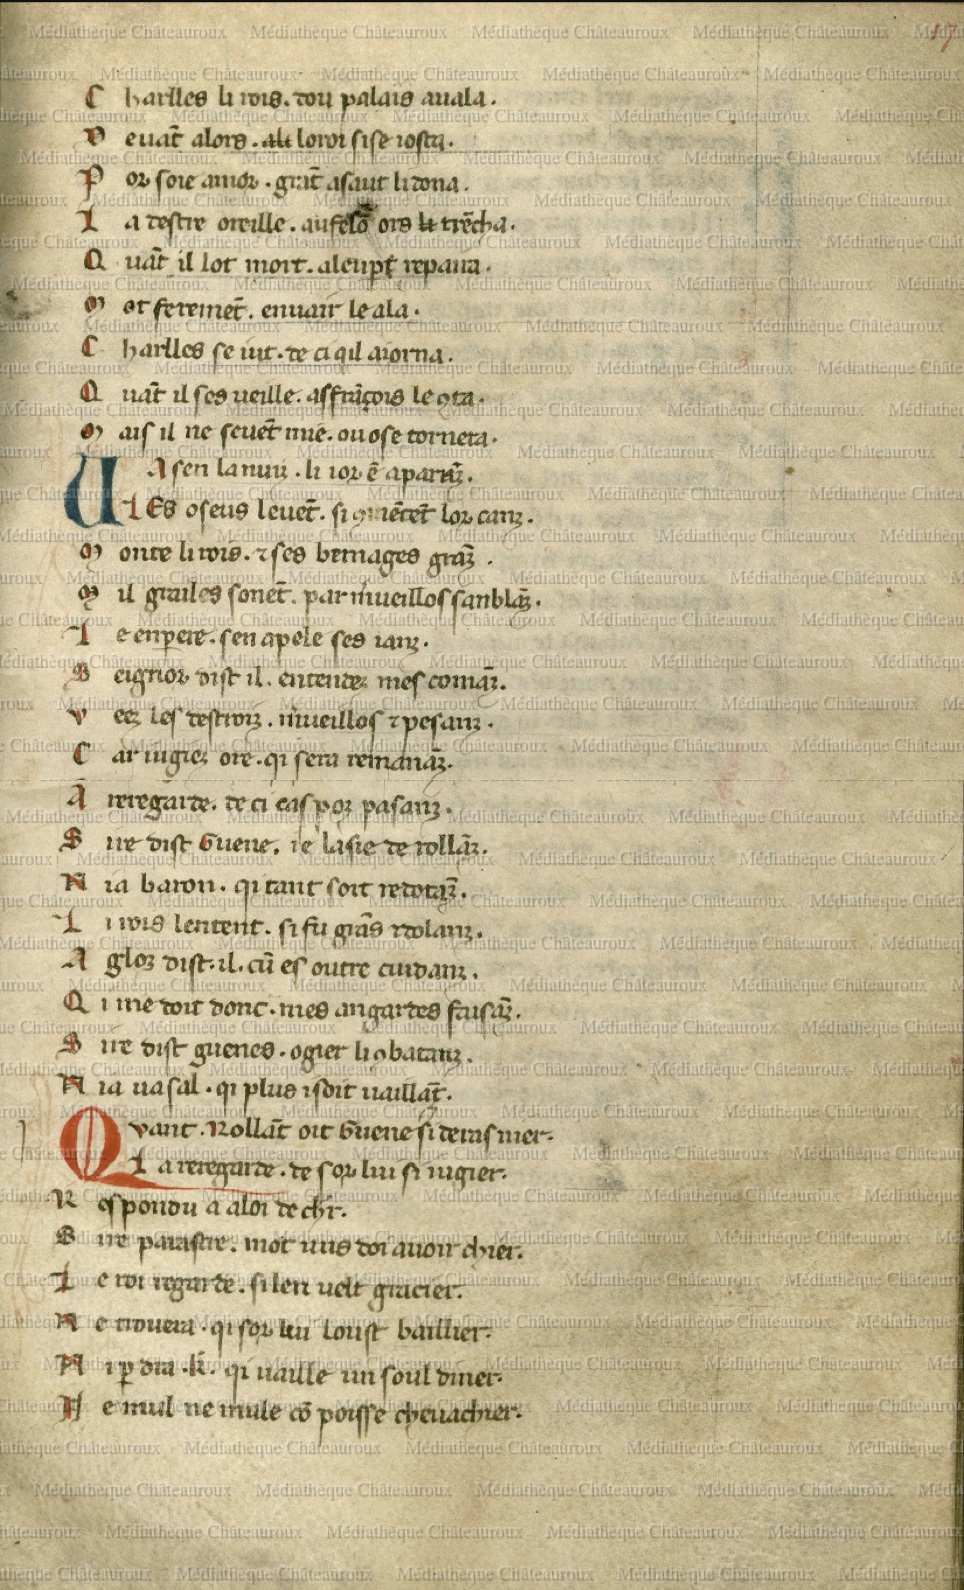 17
C harlles li rois. dou palais auala.
D euāt alors. ali loroi si se iosta.
P or soie amor. grāt asaut li dona.
L a destre oreille. au felō ors li trēcha.
Q uāt il lot mort. alenpr̄ repaira.
M ot feremēt. enuair le ala.
C harlles se iut. de ci qil aiorna.
Q uāt il ses ueille. as frāçois le 9ta.
M ais il ne seuēt mie. ou ose tornera.
U A sen la nuiz. li ior ē aparāz.
LEs oseus leuēt. si 9mēcēt lor canz.
M onte li rois. ⁊ ses bernages grāz.
M il grailes sonēt. par m̄ueillos sanblāz.
L e enꝑere. sen apele ses ianz.
S eignor dist il. entendez mes comāz.
V eez les destroiz. m̄ueillos ⁊ pesanz.
C ar iugiez ore. qi sera remanāz.
A reregarde. de ci cas porz pasanz.
S ire dist Guene. ie la sie de rollāz.
N ia baron. qi tant soit redotāz.
L i rois lentent. si fu grās ⁊ dolanz.
A gloz dist. il. cū es outre cuidanz.
Q i me doit donc. mes angardes faisāz.
S ire dist guenes. ogier li 9batanz.
N ia uasal. qi plus i soit uaillāt.
Q vant. Rollāt oit Guene si deraisnier.
L a reregarde. de sor lui si iugier.
R espondu a a loi de chr̄.
S ire parastre. mot uus doi auoir chier.
L e roi regarde. si len uelt gracier.
N e trouera. qi sor lui loust baillier.
N i ꝑdra .k̄. qi uaille un soul diner.
N e mul ne mule cō poisse cheuachier.